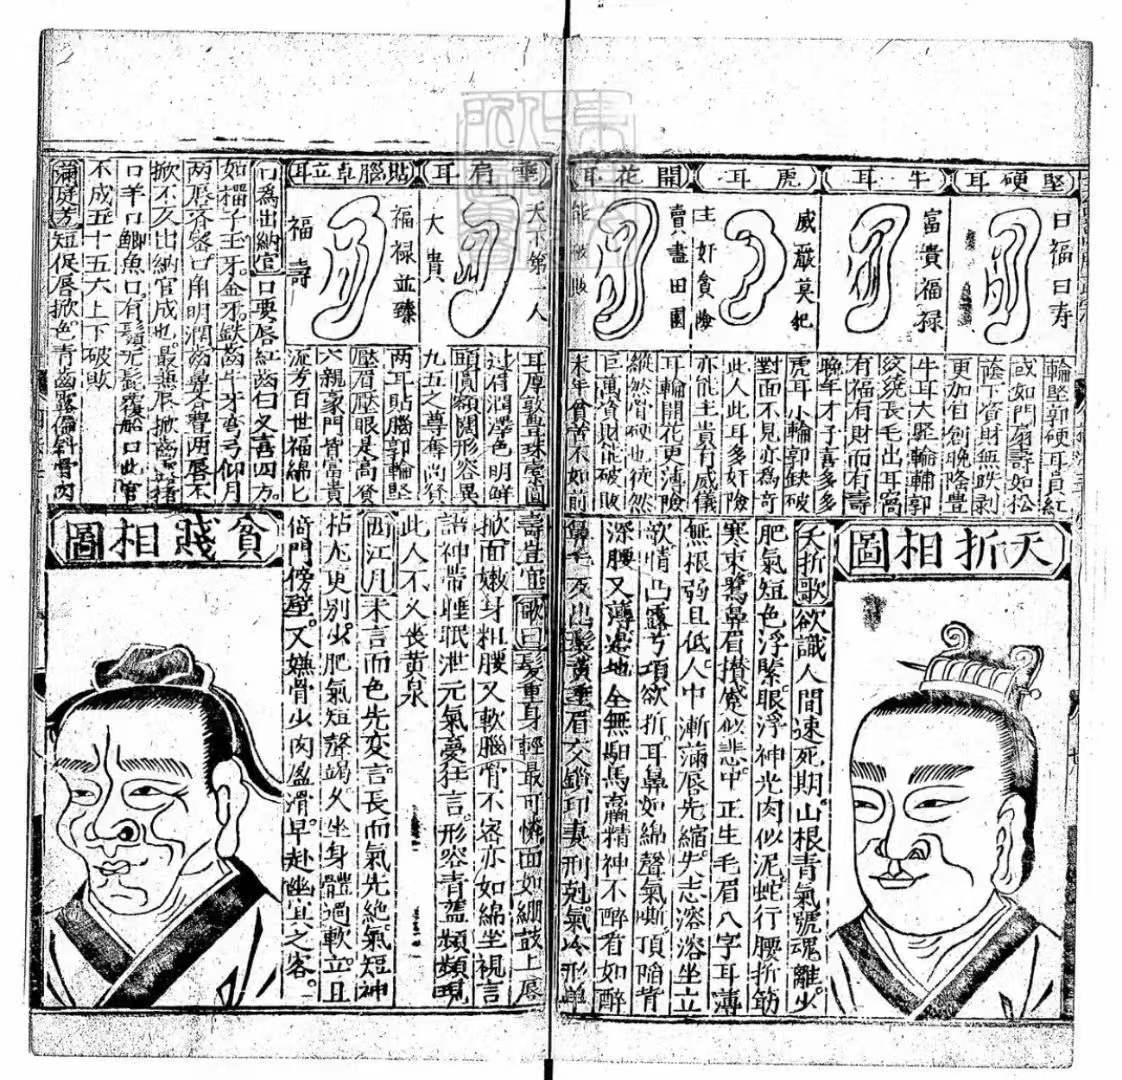 堅硬耳
曰福曰寿
輪堅郭硬耳貟紅
或如門扇壽如松
蔭下資財無跌剥
更加自創晚隆豊
牛耳
富貴福禄
牛耳大堅輪輔郭
紋繞長毛出耳窩
有福有財而有壽
晚年才子喜多多
虎耳
威嚴莫犯
主奸貪險
虎耳小輪郭缺破
對面不見亦為奇
此人此耳多奸險
亦能主貴有威儀
開花耳
賣盡田園
能破敗
耳輪開花更薄險
縱然骨硬也徒然
巨萬資財能破敗
末年貧苦不如前
垂肩耳
天下第一人
大貴
耳厚敦豊珠垂肩
過眉潤澤色明鮮
頭貟額闊形容異
九五之尊奪尚登
貼腦卓立耳
福禄並臻
福壽
兩耳貼腦郭輪堅
壓眉壓眼是高賢
六親豪門皆富貴
流芳百世福綿匕
口為出納官口要唇紅齒白又喜四方
如榴子玉牙金牙鉄齒牛牙弯弓仰月
兩唇容密口角明潤齒
口羊口鯽魚口有鬚无髭覆船口此官
不成五十五六上下破敗
滿庭芳短促唇掀色青齒露偏斜骨肉
夭折相圖
夭折歌欲識人間速死期山根青氣號魂離少
肥氣短色浮緊眼浮神光肉似泥蛇行腰折筋
寒束鷺鼻眉攅蹙似悲中正生毛眉八字耳薄
無根弱且低人中漸滿唇先縮失志溶溶坐立
欲情凸露兮項欲折耳鼻如綿聲氣嘶頂陷背
深腰又薄
全無馹馬羸精神不醉看如醉
髮黃垂眉交鎖印妻刑剋氣冷形单
壽豈宜歌曰髮重身輕最可憐面如綳鼓上唇
掀而嫩身粗腰又軟腦骨不容亦如綿坐視言
語神帶睡眠泄元氣憂狂言形容青藍頻頻現
此人不久丧黃泉
西江月未言而色先变言長而氣先絶氣短神
枯尤更别少肥氣短聲竭久坐身體過軟立且
倚門傍壁又嫌骨少肉盈滑早赴幽冥之客
貧賎相圖